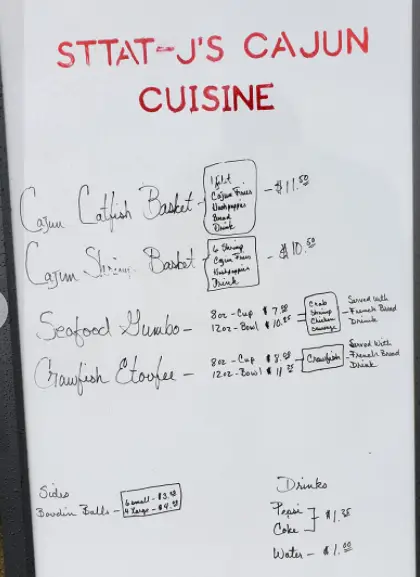 STTAT-J'S CAJUN
CUISINE
Cajun Catfish Basket - 1 filet Cajun Fries Hushpuppies Bread Drink - $11.50
Cajun Shrimp Basket - 6 Shrimp Cajun Fries Hushpuppies Drink - $10.50
Seafood Gumbo - 8oz - Cup $7. 12oz - Bowl $10. Crab Shrimp Chicken Sausage Served With French Bread Drink
Crawfish Etoufee - 8oz - Cup $8. 12oz - Bowl $11. Crawfish Served With French Bread Drink
Sides
Boudin Balls - 6 small - $3. 4 Large - $4.
Drinks
Pepsi
Coke $1.25
Water - $1.00